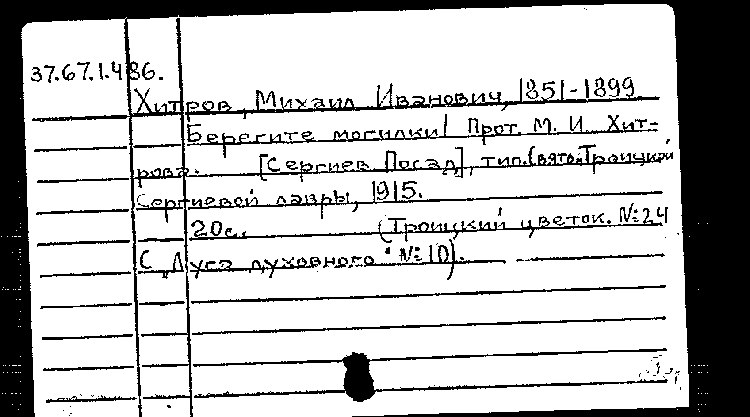 37.67.1.486.
Хитров, Михаил Иванович, 1851-1899
Берегите могилки! Прот. М. И. Хит-
рова. [Сергиев Посад], тип. Свято-Троицкой
Сергиевой лавры, 1915.
20с. (Троицкий цветок. №24
С "Луга духовного" №10).